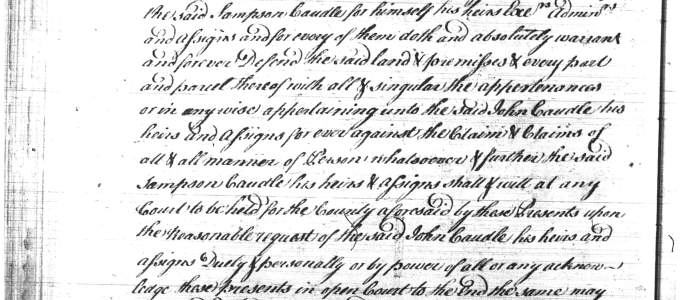 the said Sampson Caudle for himself his heirs Exe.rs Admin.rs
and Assigns and for every of them doth and absolutely warrant
and forever Defend the said land & premisses & every part
and parcel thereof with all & singular the appertenances
or in any wise appertaining unto the said John Caudle his
heirs and Assigns for ever against the Claim & Claims of
all & all manner of Person whatsoever & further the said
Sampson Caudle his heirs & assigns shall & will at any
Court to be held for the County aforesaid by these Presents upon
the reasonable request of the said John Caudle his heirs and
assigns Duely & personally or by power of all or any acknow-
ledge these presents in open Court to the End the same may